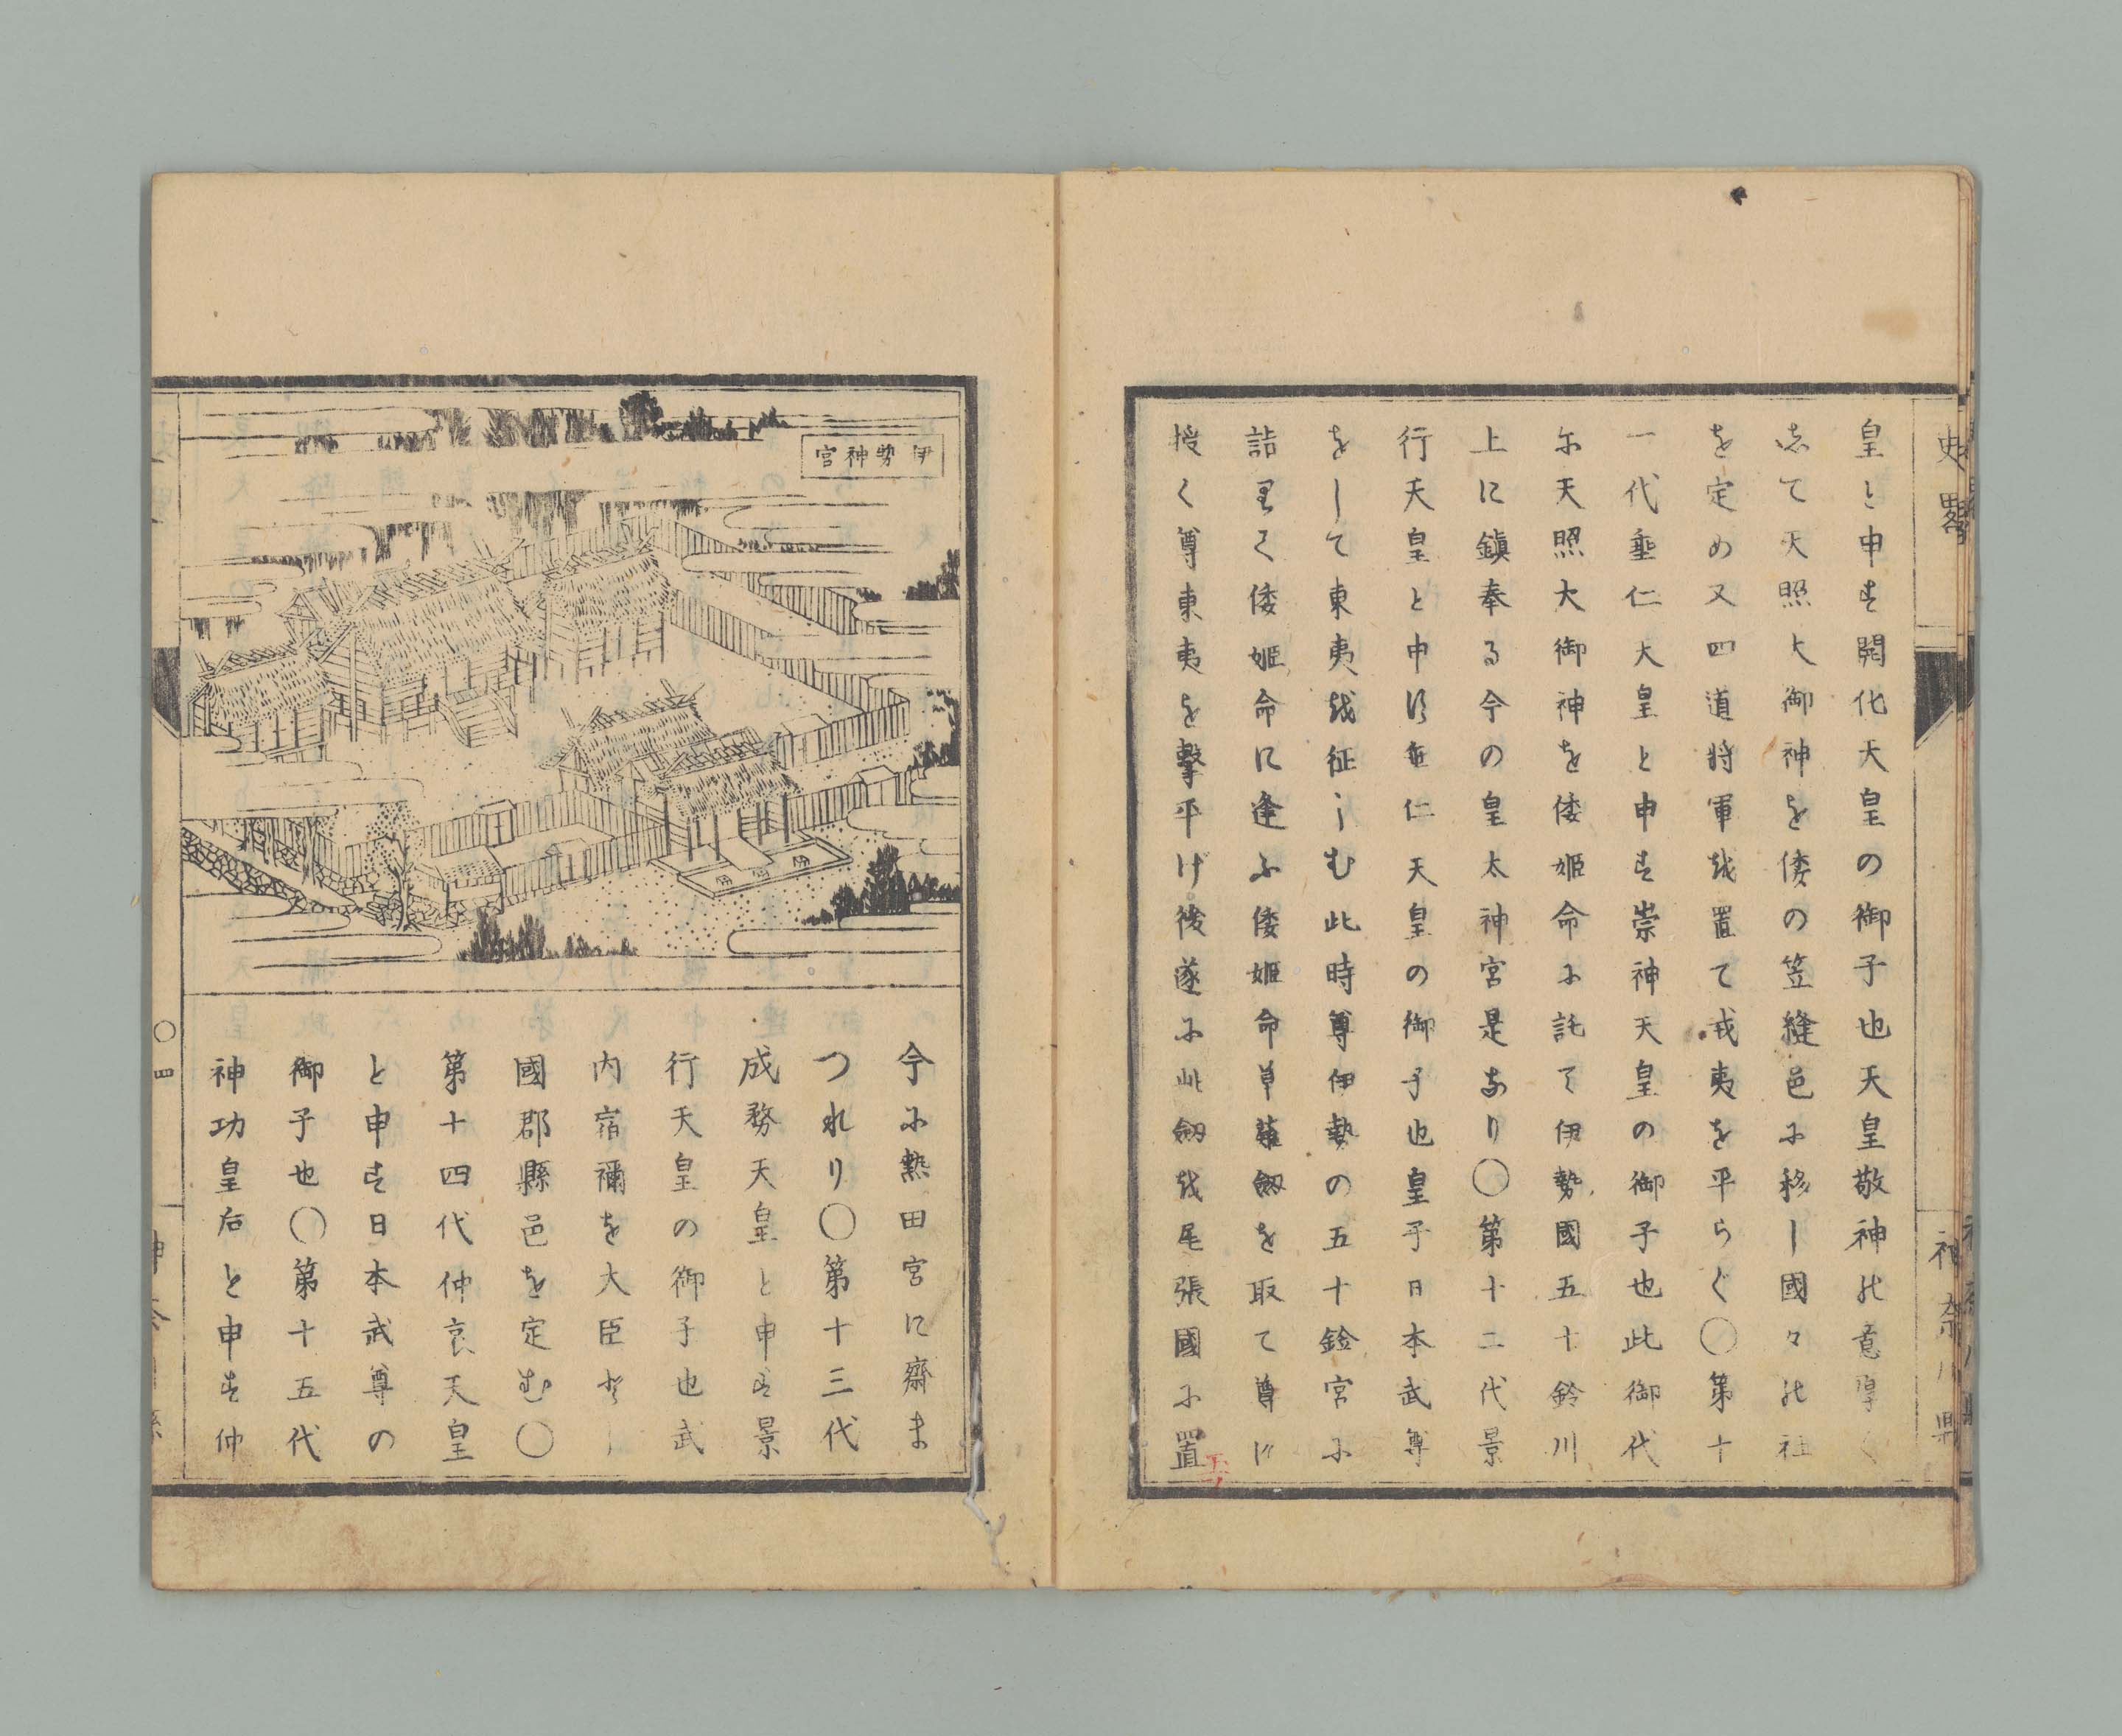 史略
神奈川縣
皇と申す開化天皇の御子也天皇敬神の意厚く
志て天照大御神を倭の笠縫邑に移し國々の祖
を定め又四道將軍を置て戎夷を平らぐ〇第十
一代垂仁天皇と申す崇神天皇の御子也此御代
に天照大御神を倭姫命に託て伊勢國五十鈴川
上に鎮奉る今の皇太神宮是なり〇第十二代景
行天皇と申す垂仁天皇の御子也皇子日本武尊
をして東夷を征しむ此時尊伊勢の五十鈴宮に
詣りて倭姫命に逢ふ倭姫命草薙劔を取て尊に
授く尊東夷を撃平げ後遂に此劔を尾張國に置
伊勢神宮
今に熱田宮に齋ま
つれり〇第十三代
成務天皇と申す景
行天皇の御子也武
内宿禰を大臣とし
國郡縣邑を定む〇
第十四代仲哀天皇
と申す日本武尊の
御子也〇第十五代
神功皇后と申す仲
〇四